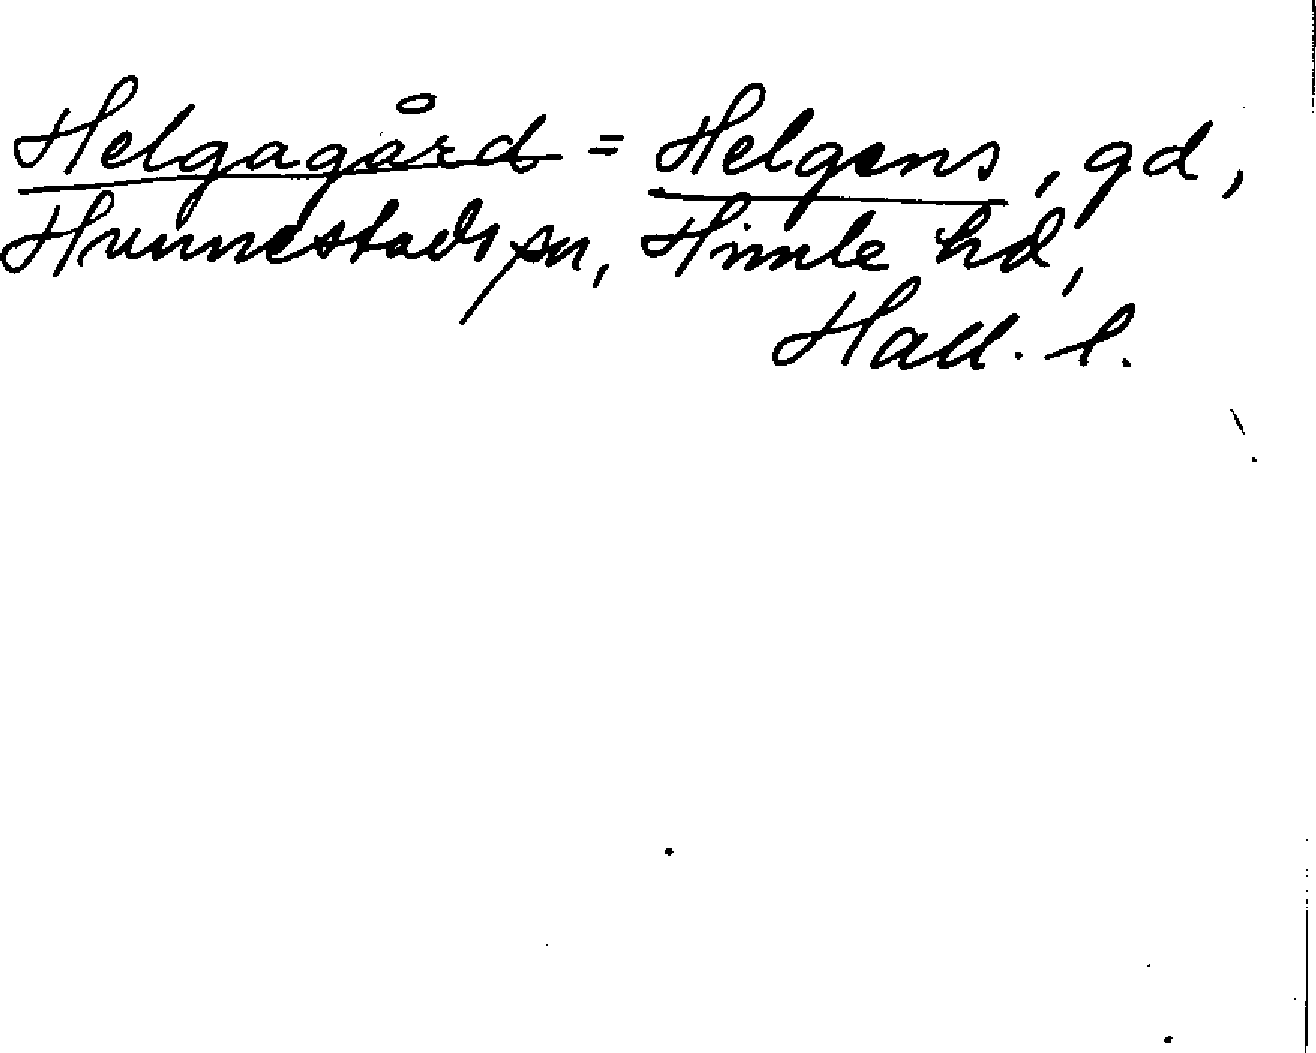 Helgagård = Helgens, gd,
Hunnestads sn, Himle hd,
Hall. l.